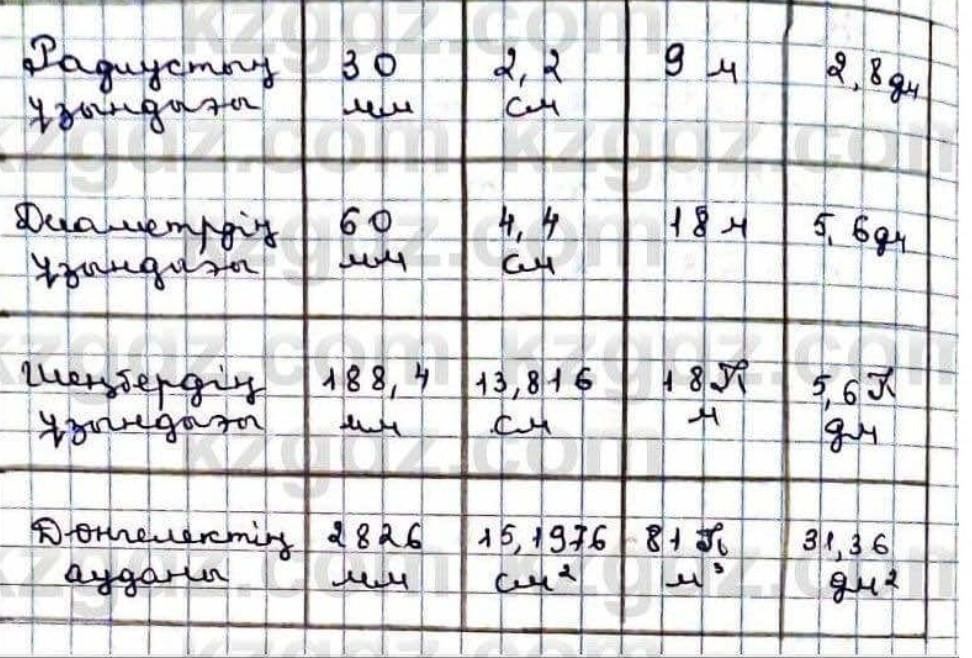 Радиустың 30 2,2 9 м 2,8 дм
ұзындығы мм см
Диаметрдің 60 4,4 18 м 5,6 дм
ұзындығы мм см
Шеңбердің 188,4 13,816 18π 5,6π
ұзындығы мм см м дм
Дөнгелектің 2826 15,1976 81π 31,36
ауданы мм см² м³ дм²
kzgdz.com